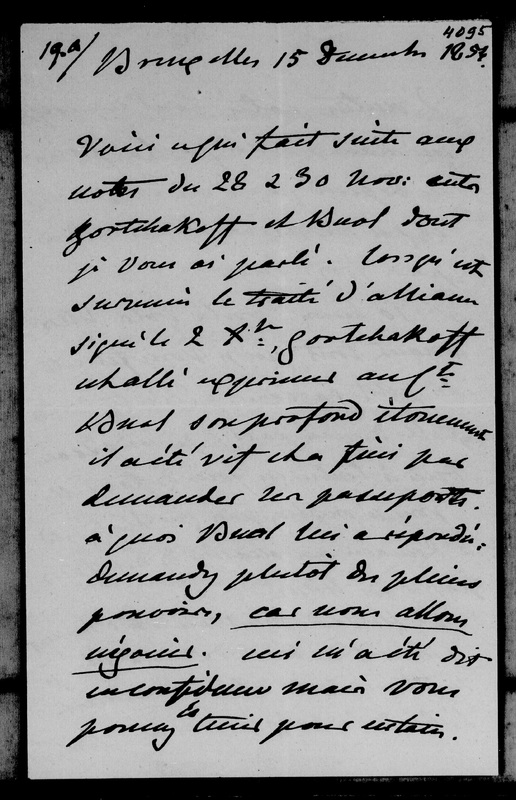 4095
19.a/ Bruxelles 15 Decembre 1854.
Voici ce qui fait suite aux
notes du 28 & 30 Nov: entre
Gortchakoff et Buol dont
je vous ai parlé. Lorsqu'est
survenu le traité d'alliance
signé le 2 Xbre, Gortchakoff
est allé exprimer au Cte
Buol son profond étonnement
il a été vif et a fini par
demander ses passeports.
à quoi Buol lui a répondu:
demandez plutôt des pleins
pouvoirs, car nous allons
négocier. ceci m'a été dit
en confidence mais vous
pouvez le tenir pour certain.